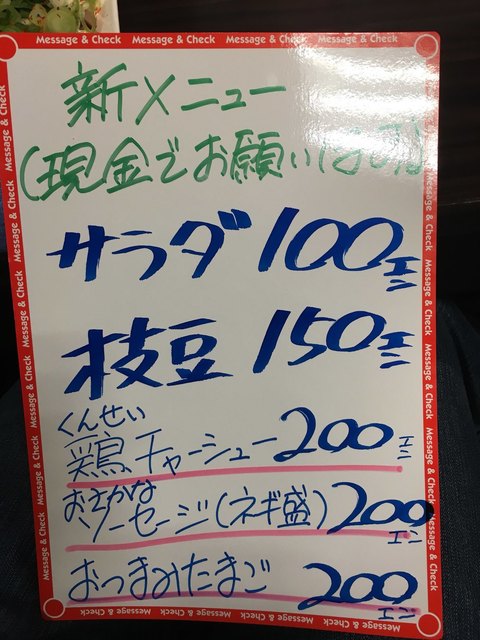 Message & Check Message & Check Message & Check Message & Check
新メニュー
(現金でお願いします)
サラダ 100エン
枝豆 150エン
くんせい
鶏チャーシュー 200エン
おさかな
ソーセージ(ネギ盛) 200エン
おつまみたまご 200エン
Message & Check Message & Check Message & Check Message & Check